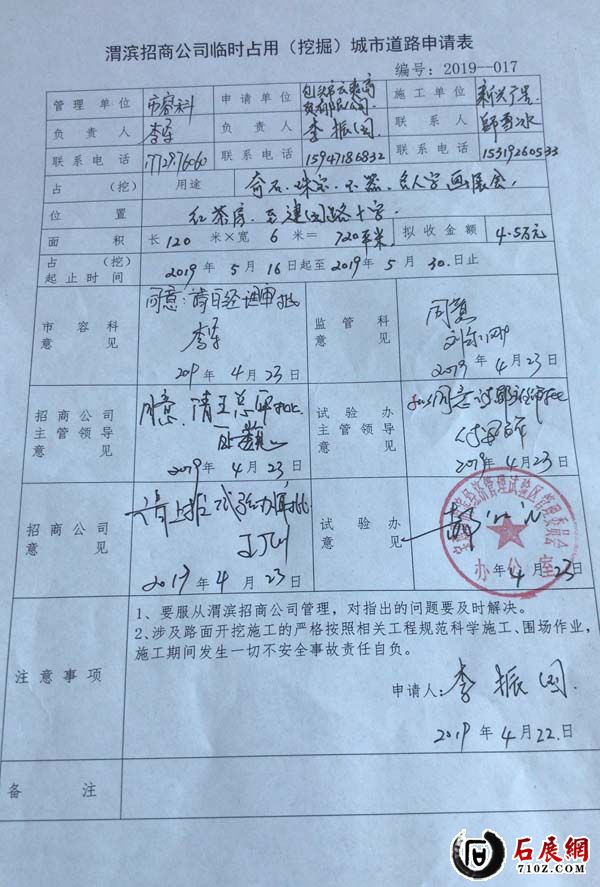 渭滨招商公司临时占用（挖掘）城市道路申请表
编号：2019—017
管理单位 市容科 申请单位 施工单位 新兴广告
负责人 李军 负责人 李振国 联系人
联系电话 17729276060 联系电话 15947186832 联系电话 15319260533
占（挖） 用途 奇石、珠宝、木器、名人字画展会，
位置 红茶房至建国路十字。
面积 长120米×宽6米=720平米 拟收金额 4.5万元
占（挖）
起止时间 2019年5月16日起至2019年5月30日止
市容科
意见
同意：请白经理审批
李军
2019年4月23日
监管科
意见
同意
2019年4月23日
招商公司
主管领导
意见
同意，请王总审批
2019年4月23日
试验办
主管领导
意见
2019年4月23日
招商公司
意见
请上报试验办审批
2019年4月23日
试验办
意见
年4月23日
办公室
注意事项
1、要服从渭滨招商公司管理，对指出的问题要及时解决。
2、涉及路面开挖施工的严格按照相关工程规范科学施工、围场作业，
施工期间发生一切不安全事故责任自负。
申请人：李振国
2019年4月22日
备注
石展網
71OZ.COM